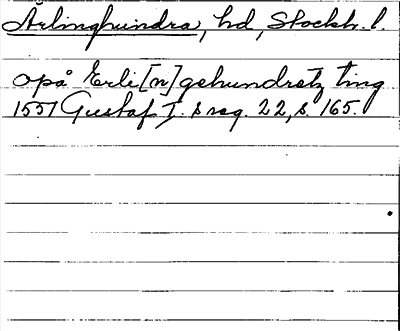 Ärlinghundra, hd, Stockh. l.
opå Erli[n]gehundretz ting
1551 Gustaf I. s reg. 22, s. 165.